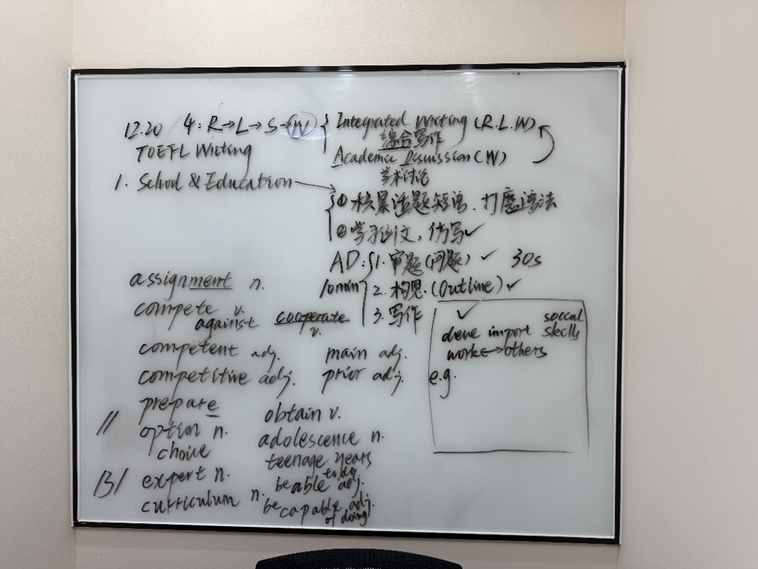 12.20 / 4: R→L→S→W { Integrated Writing (R.L.W)
综合写作
TOEFL Writing
Academic Discussion (W)
学术讨论
1. School & Education → { ① 积累话题短语、打磨语法
② 学习范文，仿写✓
AD: { 1. 审题(问题) ✓ 30s
10min 2. 构思 (Outline) ✓
3. 写作
assignment n.
compete v.
against cooperate
v.
competent adj. main adj.
competitive adj. prior adj.
prepare
// option n. obtain v.
choice adolescence n.
teenage years
/3/ expert n. be able to do adj.
curriculum n. be capable adj.
of doing
✓ social
import skills
work ↔ others
e.g.